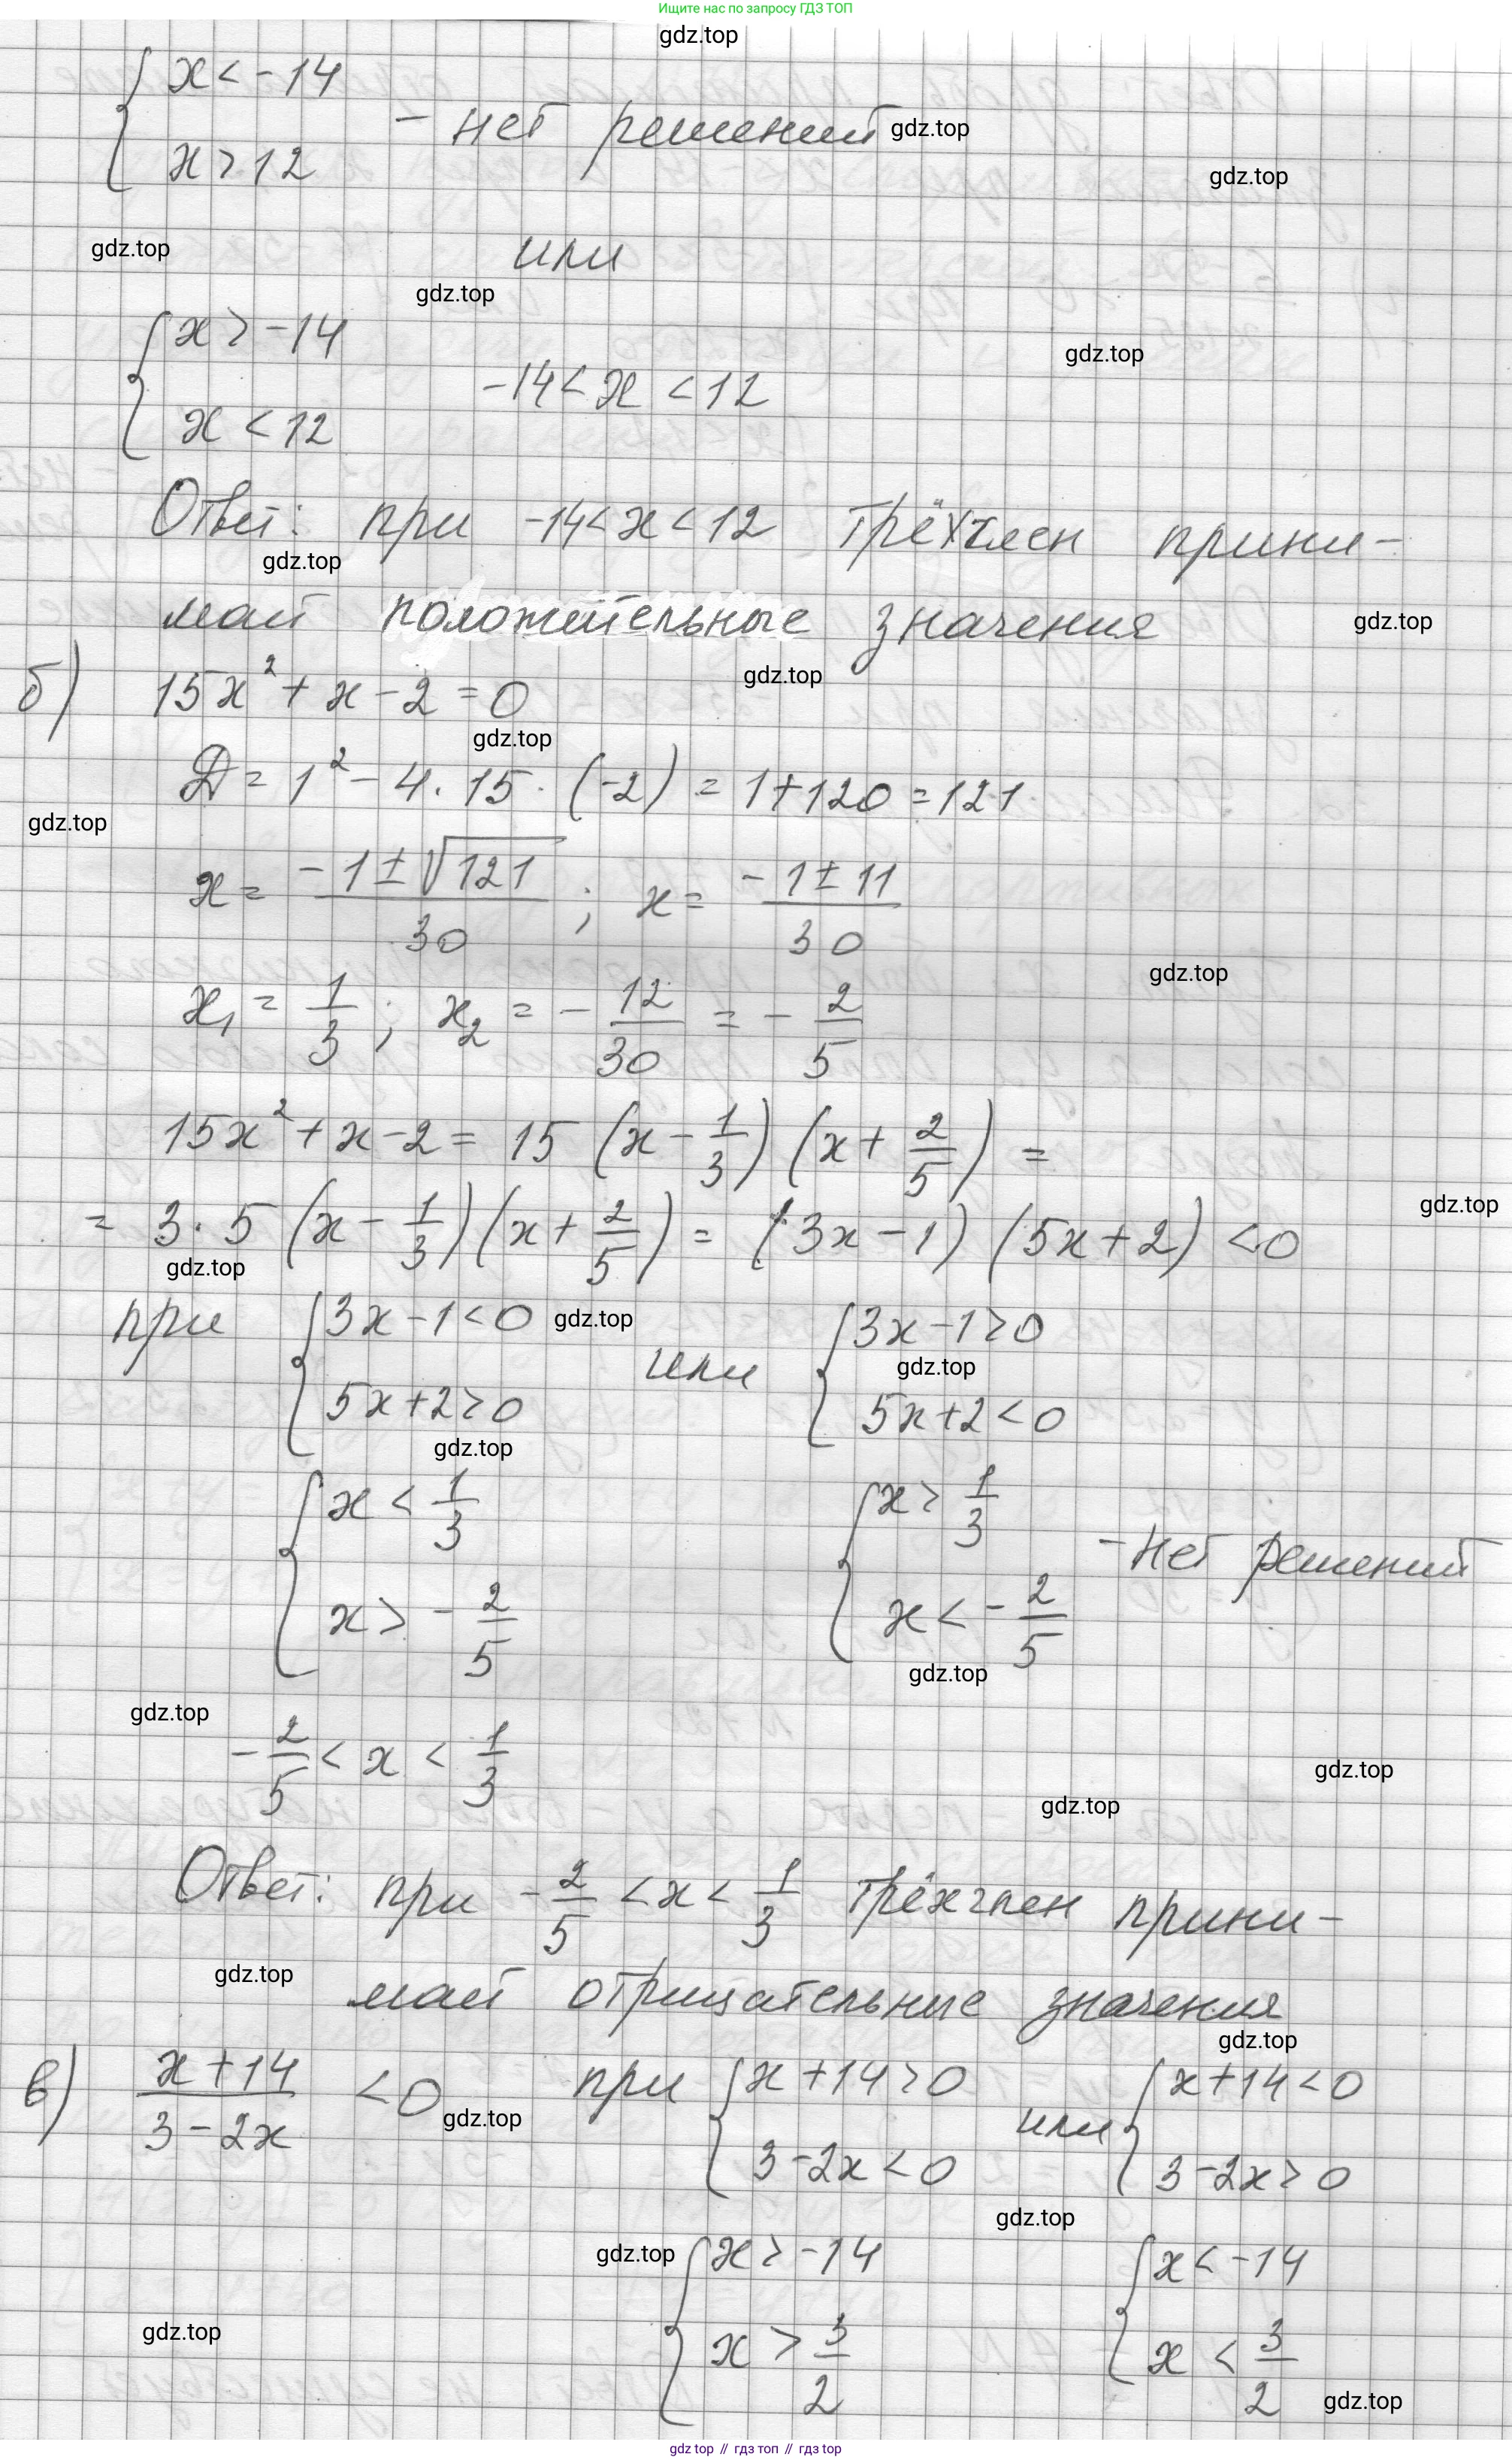 Ищите нас по запросу ГДЗ ТОП
gdz.top
{ x < -14
x > 12 - нет решений gdz.top
gdz.top
gdz.top или
gdz.top
{ x > -14
x < 12 -14 < x < 12
gdz.top
Ответ: при -14 < x < 12 трёхчлен прини-
gdz.top
мает положительные значения gdz.top
б) 15x² + x - 2 = 0 gdz.top
gdz.top
D = 1² - 4 · 15 · (-2) = 1 + 120 = 121
gdz.top
x = (-1 ± √121)/30 ; x = (-1 ± 11)/30
gdz.top
x₁ = 1/3 ; x₂ = - 12/30 = - 2/5
15x² + x - 2 = 15 (x - 1/3) (x + 2/5) =
gdz.top
= 3 · 5 (x - 1/3) (x + 2/5) = (3x - 1) (5x + 2) < 0
gdz.top
при { 3x - 1 < 0 gdz.top или { 3x - 1 > 0
gdz.top
5x + 2 > 0 5x + 2 < 0
gdz.top
{ x < 1/3 { x > 1/3
- нет решений
x > - 2/5 x < - 2/5
gdz.top
gdz.top
- 2/5 < x < 1/3
gdz.top
gdz.top
Ответ: при - 2/5 < x < 1/3 трёхчлен прини-
gdz.top
мает отрицательные значения
gdz.top
в) (x + 14)/(3 - 2x) < 0 gdz.top при { x + 14 > 0 или { x + 14 < 0
3 - 2x < 0 3 - 2x > 0
gdz.top
gdz.top { x > -14 { x < -14
gdz.top
x > 3/2 x < 3/2
gdz.top
gdz top // гдз топ // гдз top